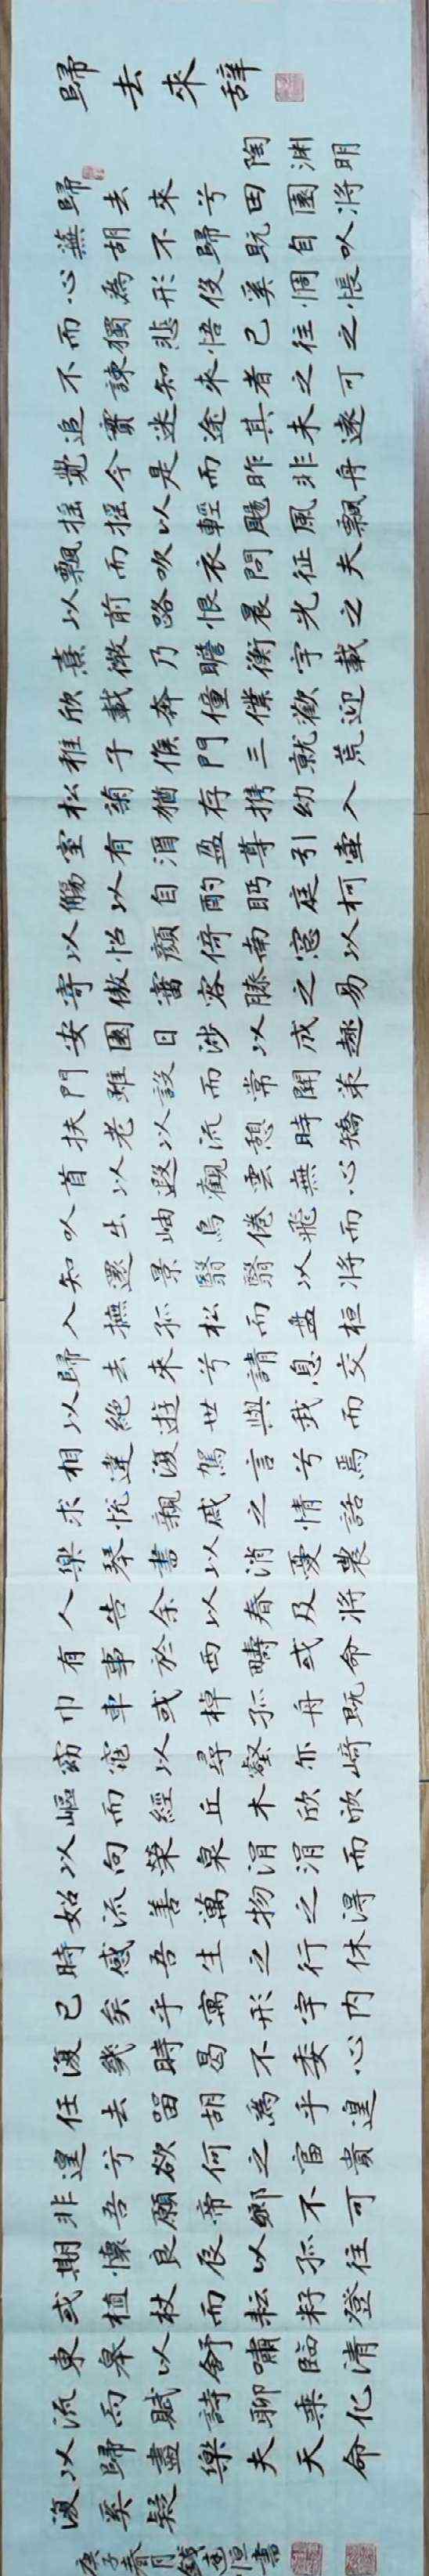 歸去來辭
陶淵明
歸去來兮田園將
蕪胡不歸既自以
心為形役奚惆悵
而獨悲悟已往之
不諫知來者之可
追實迷途其未遠
覺今是而昨非舟
搖搖以輕颺風飄
飄而吹衣問征夫
以前路恨晨光之
熹微乃瞻衡宇載
欣載奔僮僕歡迎
稚子候門三就荒
松菊猶存携幼入
室有酒盈尊引壺
觴以自酌眄庭柯
以怡顏倚南窓以
寄傲審容膝之易
安園日涉以成趣
門雖設而常關策
扶老以流憩時矯
首而遐觀雲無心
以出岫鳥倦飛而
知還景翳翳以將
入撫孤松而盤桓
歸去來兮請息交
以絕遊世與我而
相違復駕言兮焉
求悅親戚之情話
樂琴書以消憂農
人告余以春及將
有事於西疇或命
巾車或棹孤舟既
窈窕以尋壑亦崎
嶇而經丘木欣欣
以向榮泉涓涓而
始流善萬物之得
時感吾生之行休
已矣乎寓形宇內
復幾時曷不委心
任去留胡為乎遑
遑兮欲何之富貴
非吾願帝鄉不可
期懷良辰以孤往
或植杖而耘耔登
東皋以舒嘯臨清
流而賦詩聊乘化
以歸盡樂夫天命
復奚疑
庚子春月錢恒書